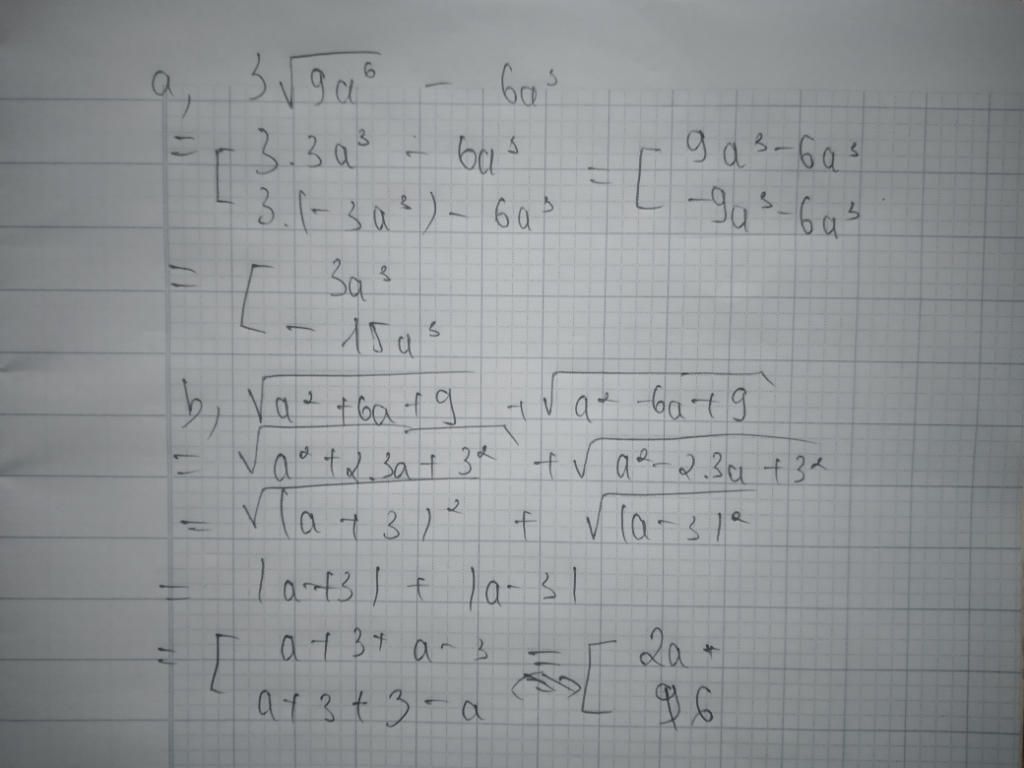 a, 3√9a⁶ - 6a³
= [ 3.3a³ - 6a³ = [ 9a³ - 6a³
3.(-3a³) - 6a³ -9a³ - 6a³
= [ 3a³
- 15a³
b, √a² + 6a + 9 + √a² - 6a + 9
= √a² + 2.3a + 3² + √a² - 2.3a + 3²
= √(a + 3)² + √(a - 3)²
= |a + 3| + |a - 3|
= [ a + 3 + a - 3 = [ 2a
a + 3 + 3 - a 6